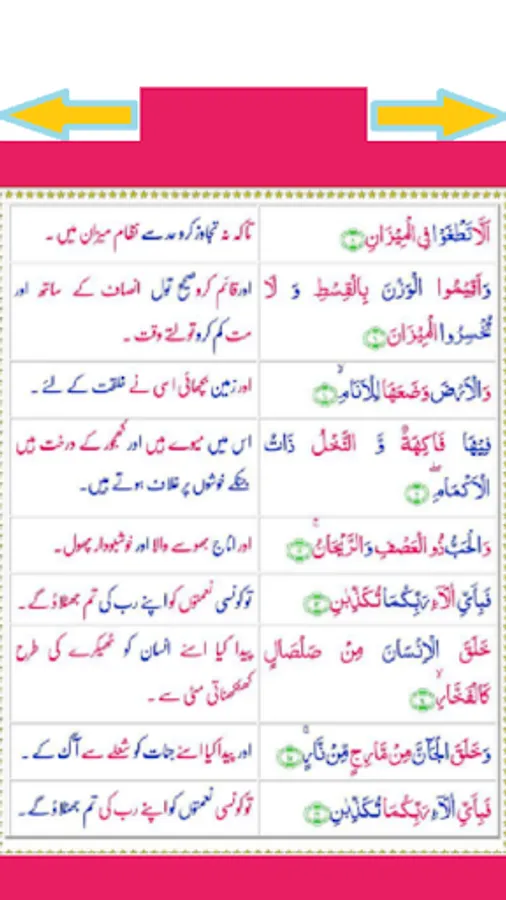 اَلَّا تَطْغَوْا فِی الْمِیْزَانِ
تاکہ نہ تجاوز کرو حد سے نظام میزان میں ۔
وَاَقِیْمُوا الْوَزْنَ بِالْقِسْطِ وَ لَا
تُخْسِرُوا الْمِیْزَانَ
اور قائم کرو صحیح تول انصاف کے ساتھ اور
مت کم کرو تولتے وقت ۔
وَ الْاَرْضَ وَضَعَهَا لِلْاَنَامِ
اور زمین بچھائی اسی نے خلقت کے لئے ۔
فِیْهَا فَاكِهَةٌ وَّ النَّخْلُ ذَاتُ
الْاَكْمَامِ
اس میں میوے ہیں اور کھجور کے درخت ہیں
جنکے خوشوں پر غلاف ہوتے ہیں۔
وَ الْحَبُّ ذُو الْعَصْفِ وَ الرَّیْحَانُ
اور اناج بھوسے والا اور خوشبودار پھول۔
فَبِاَیِّ اٰلَآءِ رَبِّكُمَا تُكَذِّبٰنِ
تو کونسی نعمتوں کو اپنے رب کی تم جھٹلاؤ گے۔
خَلَقَ الْاِنْسَانَ مِنْ صَلْصَالٍ
كَالْفَخَّارِ
پیدا کیا اسنے انسان کو ٹھیکرے کی طرح
کھنکھناتی مٹی سے ۔
وَ خَلَقَ الْجَآنَّ مِنْ مَّارِجٍ مِّنْ نَّارٍ
اور پیدا کیا اسنے جنات کو شعلے سے آگ کے ۔
فَبِاَیِّ اٰلَآءِ رَبِّكُمَا تُكَذِّبٰنِ
تو کونسی نعمتوں کو اپنے رب کی تم جھٹلاؤ گے۔